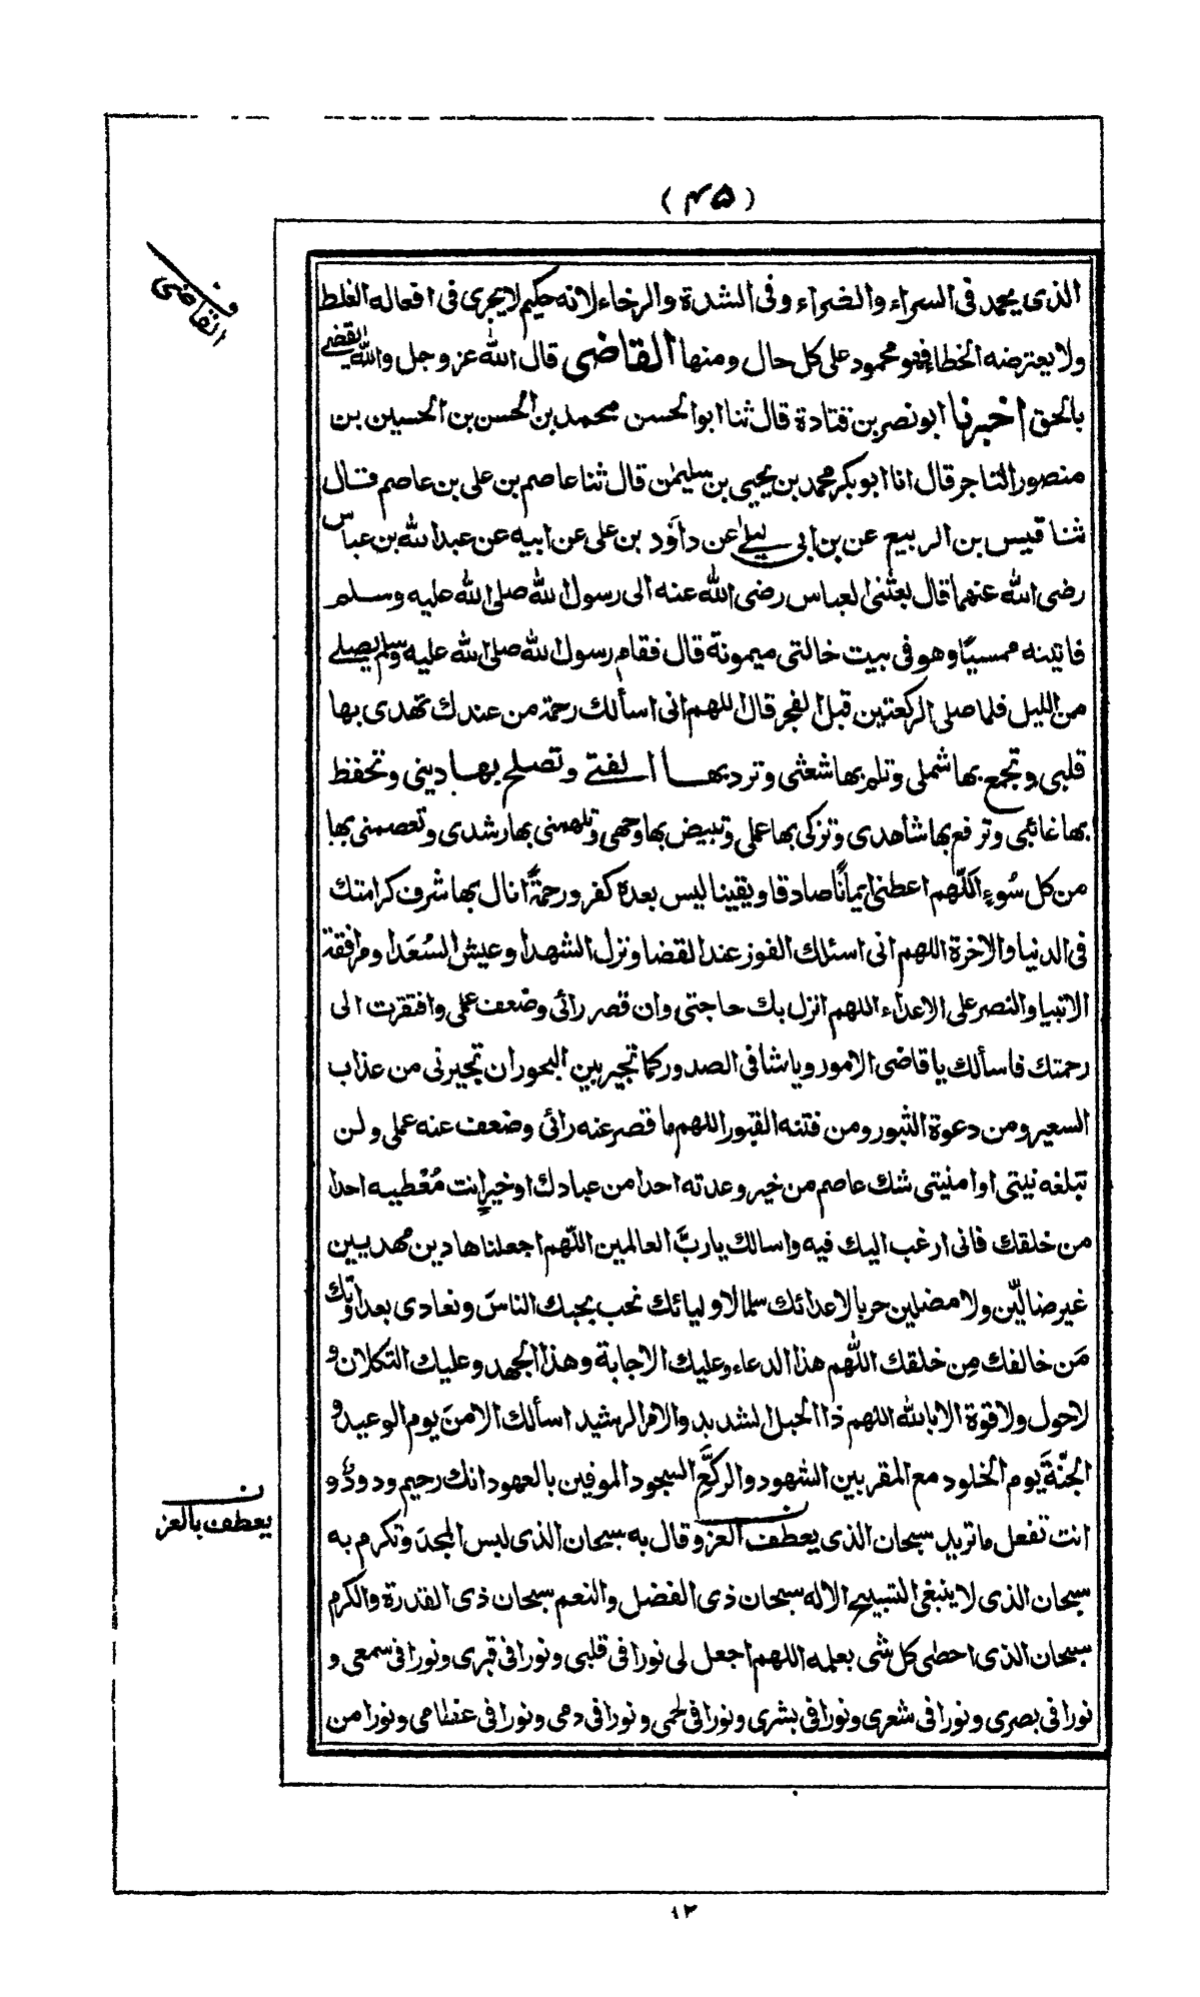 (۴۵)
ف
القاضي
الذى يحمد فى السراء والضراء وفى الشدة والرخاء لانه حكيم لا يجرى فى افعاله الغلط
ولا يعترضه الخطاء فهو محمود على كل حال ومنها القاضى قال الله عز وجل والله يقضى
بالحق اخبرنا ابو نصر بن قتادة قال ثنا ابو الحسن محمد بن الحسن بن الحسين بن
منصور التاجر قال انا ابو بكر محمد بن يحيى بن سليمٰن قال ثنا عاصم بن على بن عاصم قال
ثنا قيس بن الربيع عن بن ابى ليلےٰ عن داؤد بن على عن ابيه عن عبد الله بن عباس
رضى الله عنهما قال بعثنى العباس رضى الله عنه الى رسول الله صلى الله عليه وسلم
فاتيته ممسيًا وهو فى بيت خالتى ميمونة قال فقام رسول الله صلى الله عليه وسلم يصلے
من الليل فلما صلى الركعتين قبل الفجر قال اللهم انى اسألك رحمة من عندك تهدى بها
قلبى وتجمع بها شملى وتلم بها شعثى وترد بها الفتے وتصلح بها دينى وتحفظ
بها غائبى وترفع بها شاهدى وتزكى بها عملى وتبيض بها وجهى وتلهمنى بها رشدى وتعصمنى بها
من كل سُوءٍ اَللّٰهم اعطنى ايمانًا صادقا ويقينا ليس بعده كفر ورحمةً انال بها شرف كرامتك
فى الدنيا والاخرة اللهم انى اسئلك الفوز عند القضا ونزل الشهدا وعيش السُعَدا ومرافقة
الانبيا والنصر على الاعداء اللهم انزل بك حاجتى وان قصر رائى وضعف عملى وافتقرت الى
رحمتك فاسألك يا قاضى الامور ويا شافى الصدور كما تجير بين البحور ان تجيرنى من عذاب
السعير ومن دعوة الثبور ومن فتنه القبور اللهم ما قصر عنه رائى وضعف عنه عملى ولن
تبلغه نيتى او امنيتى شك عاصم من خير وعدته احدا من عبادك او خيرٍ انت مُعْطيه احدا
من خلقك فانى ارغب اليك فيه واسالك يا ربَّ العالمين اللّٰهم اجعلنا هادين مهديين
غير ضالّين ولا مضلين حربا لاعدائك سلما لاوليائك نحب بحبك الناسَ ونعادى بعداوتك
مَن خالفك مِن خلقك اللّٰهم هذا الدعاء وعليك الاجابة وهذا الجهد وعليك التكلان و
لا حول ولا قوة الا بالله اللهم ذا الحبل الشديد والامر الرشيد اسألك الامنَ يوم الوعيد و
الجنّةَ يوم الخلود مع المقربين الشهود والركَّعِ السجود الموفين بالعهود انك رحيم ودودٌ و
انت تفعل ما تريد سبحان الذى يعطف العز وقال به سبحان الذى لبس المجدَ وتكرم به
ن
يعطف بالعز
سبحان الذى لا ينبغى التسبيح الا له سبحان ذى الفضل والنعم سبحان ذى القدرة والكرم
سبحان الذى احصٰى كل شى بعلمه اللهم اجعل لى نورا فى قلبى ونورا فى قبرى ونورا فى سمعى و
نورا فى بصرى ونورا فى شعرى ونورا فى بشرى ونورا فى لحمى ونورا فى دمى ونورا فى عظامى ونورا من
۱۲